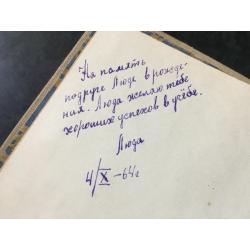 На память
подруге Люде в рожде-
ния. Люда желаю тебе
хороших успехов в учёбе.
Люда
4/X -64г